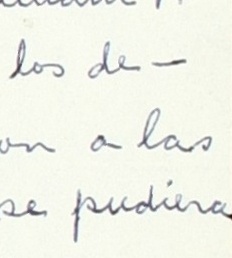 los de-
on a las
se pudiera